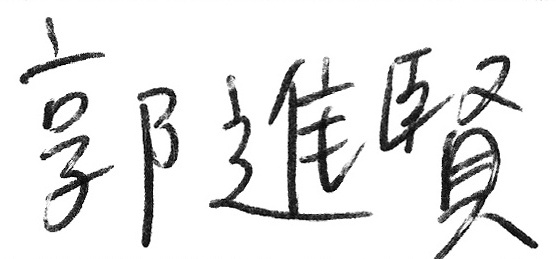 郭進賢